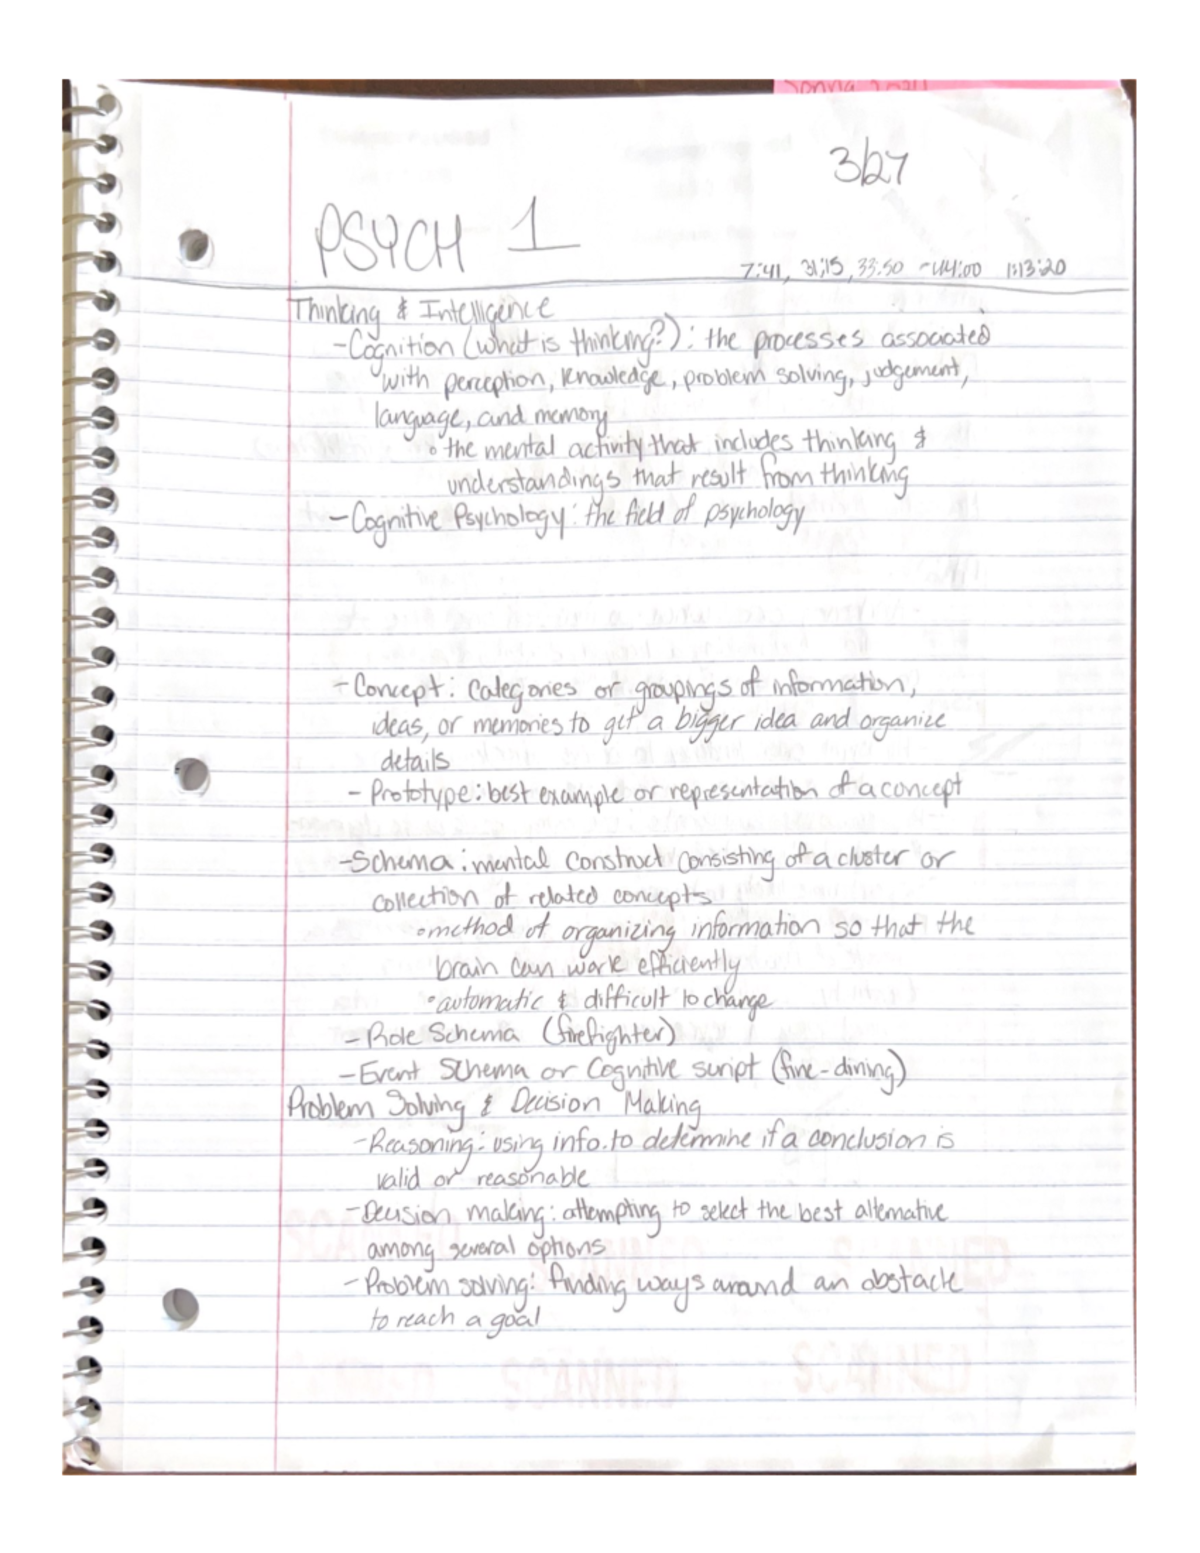 3/27
PSYCH 1
7:41, 31:15, 33:50 - 44:00 1:13:20
Thinking & Intelligence
- Cognition (what is thinking?): the processes associated
with perception, knowledge, problem solving, judgement,
language, and memory
° the mental activity that includes thinking &
understandings that result from thinking
- Cognitive Psychology: the field of psychology
- Concept: Categories or groupings of information,
ideas, or memories to get a bigger idea and organize
details
- Prototype: best example or representation of a concept
- Schema: mental construct consisting of a cluster or
collection of related concepts
° method of organizing information so that the
brain can work efficiently
° automatic & difficult to change
- Role Schema (firefighter)
- Event Schema or Cognitive script (fine-dining)
Problem Solving & Decision Making
- Reasoning: using info. to determine if a conclusion is
valid or reasonable
- Decision making: attempting to select the best alternative
among several options
- Problem solving: finding ways around an obstacle
to reach a goal